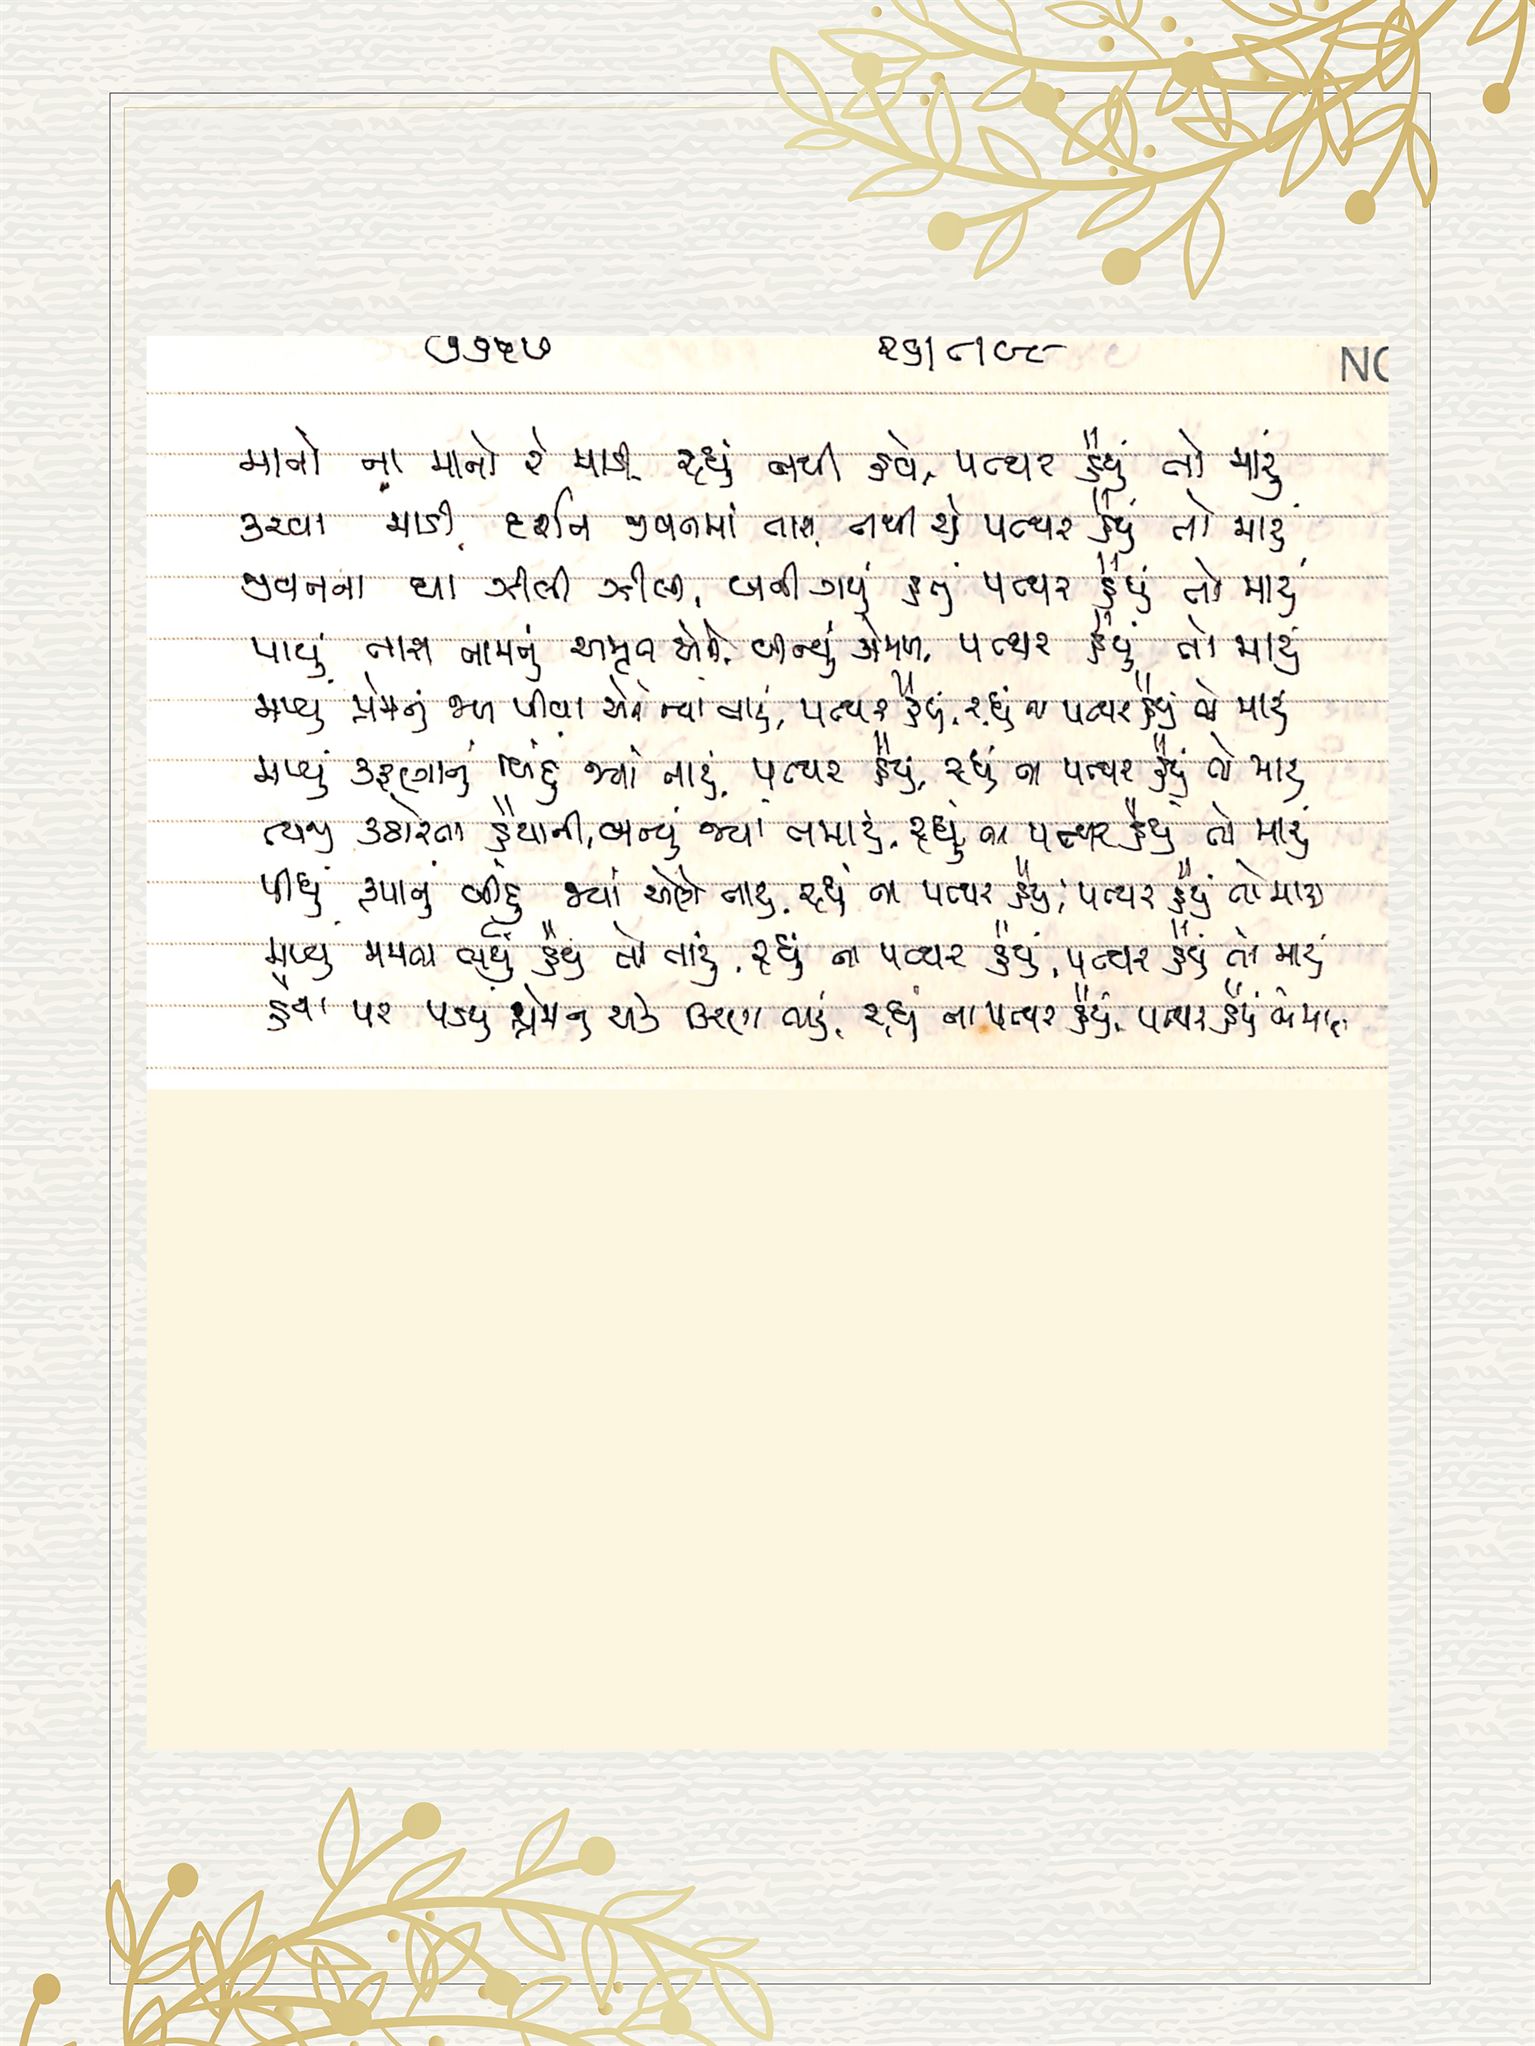 ૭૭૨૭ ૨૬/૮/૯૮ NO
માનો ના માનો રે માડી રહ્યું નથી હવે, પત્થર હૈયું તો મારું
કરવા માડી દર્શન જીવનમાં તારા, નથી રહ્યું પત્થર હૈયું તો મારું
જીવનના ઘા ઝીલી ઝીલી, બની ગયું હતું પત્થર હૈયું તો મારું
પાયું તારા નામનું અમૃત એને, બન્યું કોમળ, પત્થર હૈયું તો મારું
મળ્યું પ્રેમનું જળ પીવા એને જ્યાં તારું, પત્થર હૈયું, રહ્યું ના પત્થર હૈયું તો મારું
મળ્યું કરૂણાનું બિંદુ જ્યાં તારું, પત્થર હૈયું, રહ્યું ના પત્થર હૈયું તો મારું
ત્યજી કઠોરતા હૈયાની, બન્યું જ્યાં તમારું, રહ્યું ના પત્થર હૈયું તો મારું
પીધું કૃપાનું બિંદુ જ્યાં એણે તારું, રહ્યું ના પત્થર હૈયું, પત્થર હૈયું તો મારું
મળ્યું મમતા ભર્યું હૈયું તો તારું, રહ્યું ના પત્થર હૈયું, પત્થર હૈયું તો મારું
હૈયા પર પડ્યું પ્રેમનું એક કિરણ તારું, રહ્યું ના પત્થર હૈયું, પત્થર હૈયું તો મારું